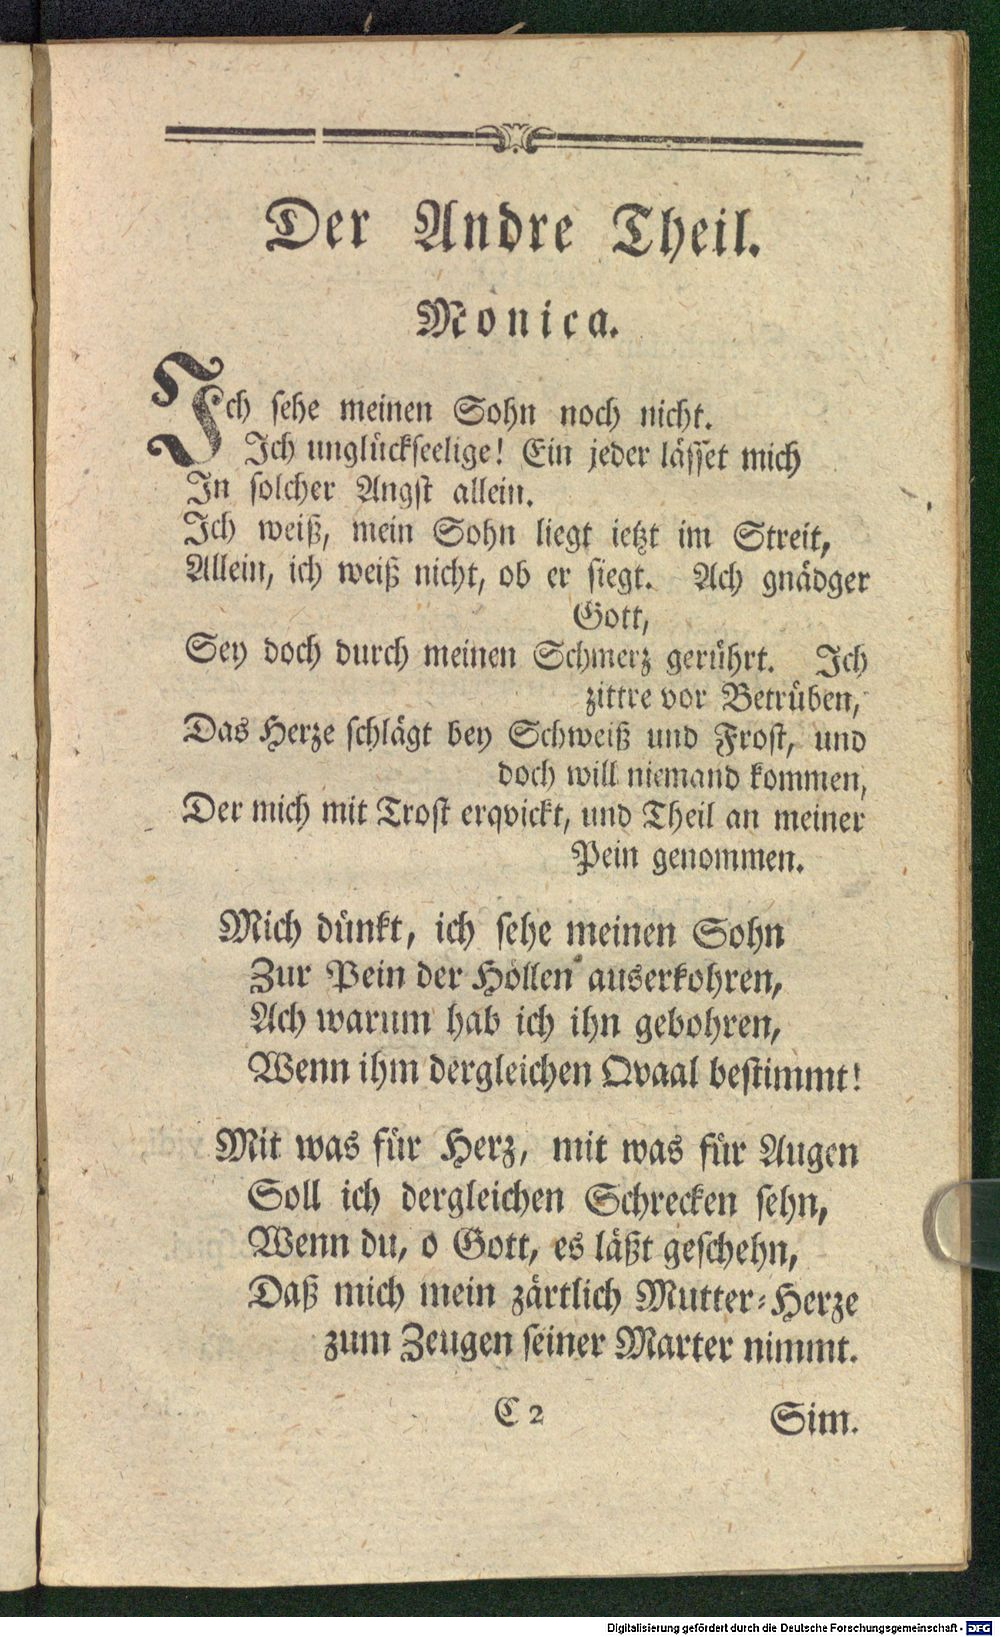 Der Andre Theil.
Monica.
Ich sehe meinen Sohn noch nicht.
Ich unglückseelige! Ein jeder lässet mich
In solcher Angst allein.
Ich weiß, mein Sohn liegt ietzt im Streit,
Allein, ich weiß nicht, ob er siegt. Ach gnädger
Gott,
Sey doch durch meinen Schmerz gerührt. Ich
zittre vor Betrüben,
Das Herze schlägt bey Schweiß und Frost, und
doch will niemand kommen,
Der mich mit Trost erqvickt, und Theil an meiner
Pein genommen.
Mich dünkt, ich sehe meinen Sohn
Zur Pein der Höllen auserkohren,
Ach warum hab ich ihn gebohren,
Wenn ihm dergleichen Qvaal bestimmt!
Mit was für Herz, mit was für Augen
Soll ich dergleichen Schrecken sehn,
Wenn du, o Gott, es läßt geschehn,
Daß mich mein zärtlich Mutter-Herze
zum Zeugen seiner Marter nimmt.
C 2 Sim.
Digitalisierung gefördert durch die Deutsche Forschungsgemeinschaft - DFG